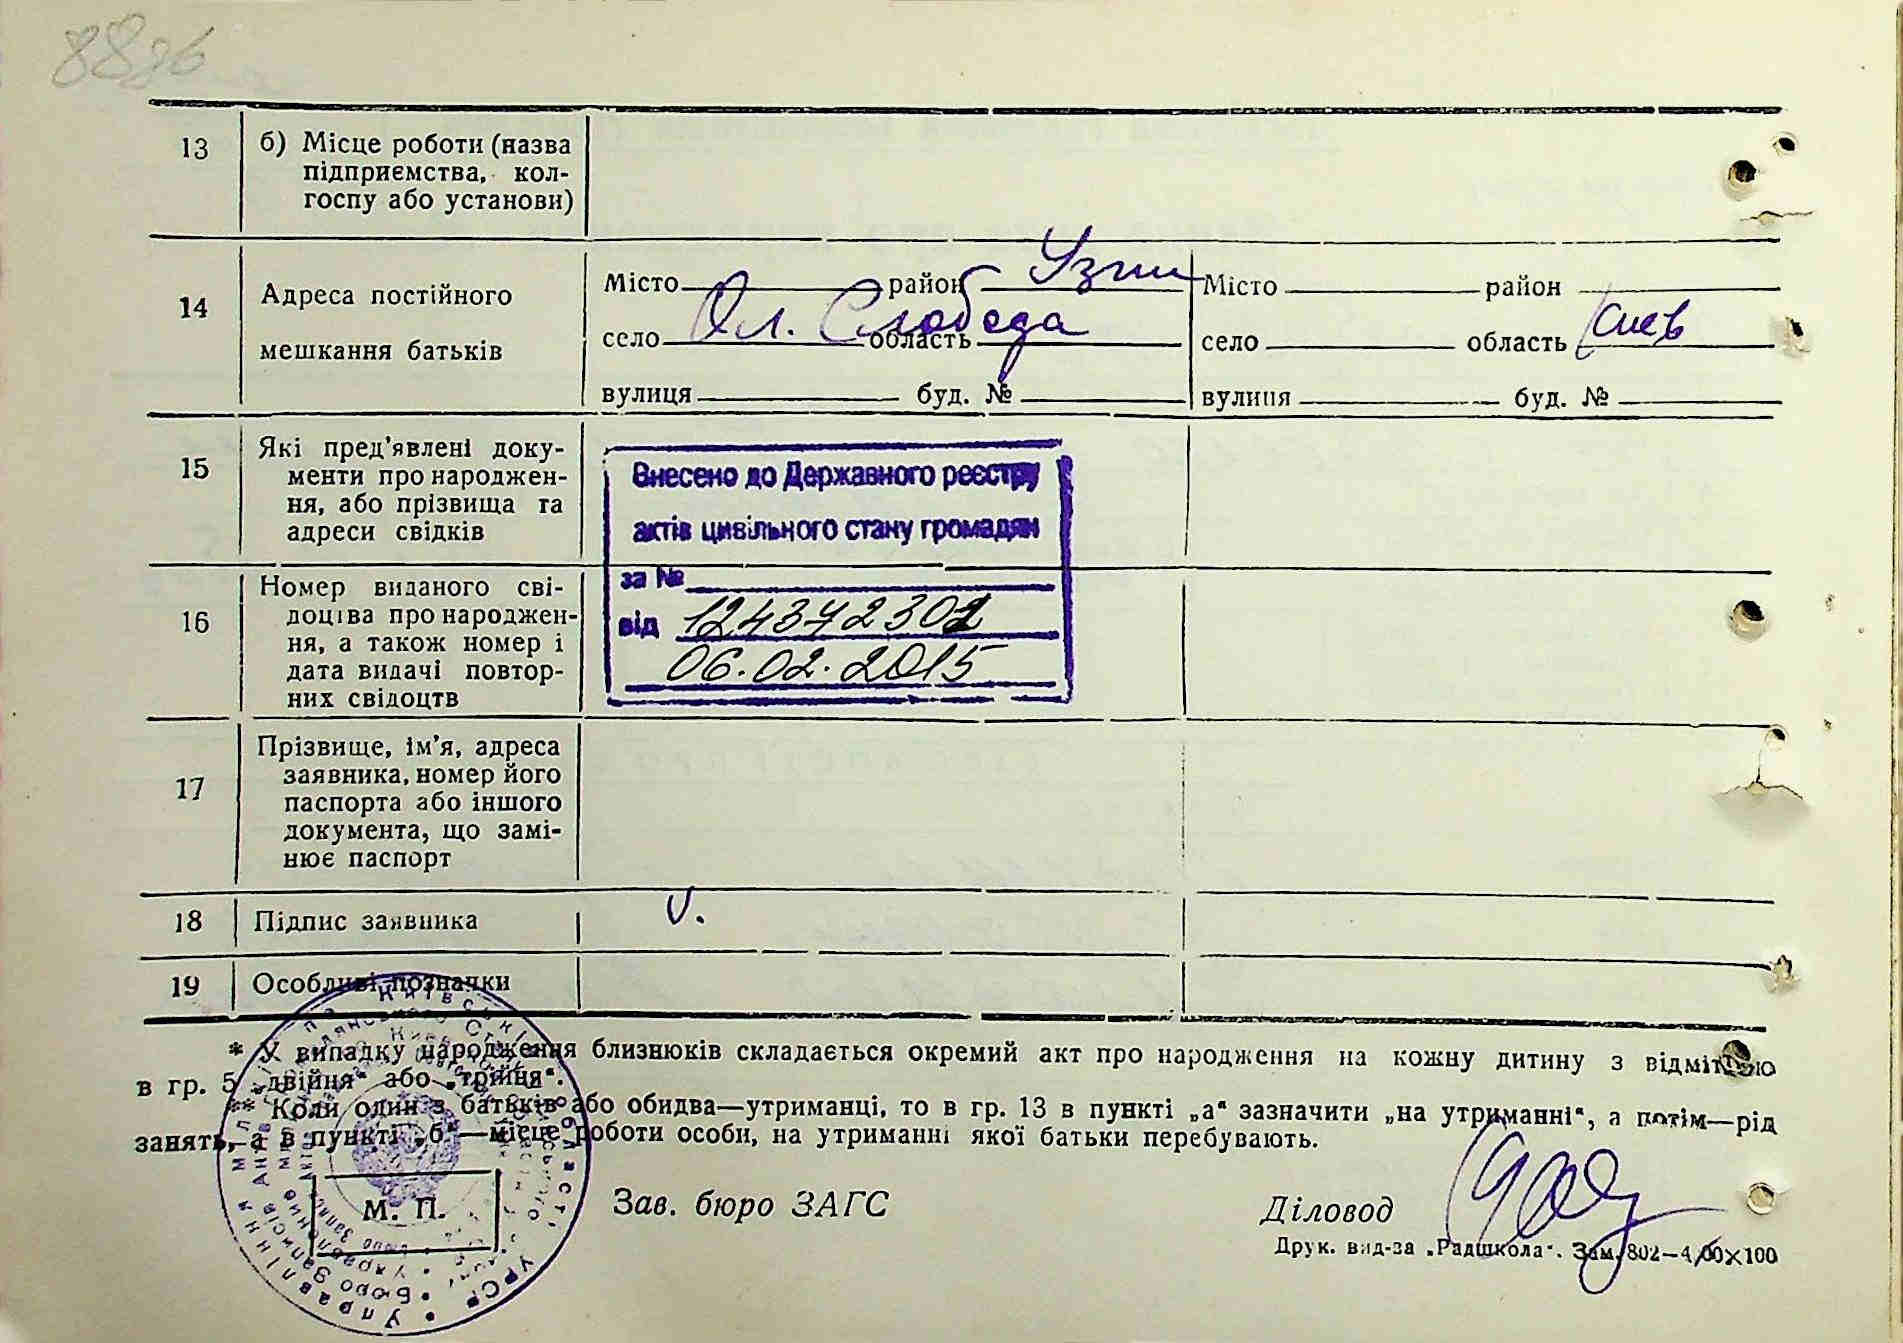 13
б) Місце роботи (назва
підприємства, кол-
госпу або установи)
14
Адреса постійного
мешкання батьків
Місто район Узин
село Ол. Слобода область
вулиця буд. №
Місто район
село область Киев
вулиця буд. №
15
Які пред'явлені доку-
менти про народжен-
ня, або прізвища та
адреси свідків
Внесено до Державного реєстру
актів цивільного стану громадян
за №
від 12437230
06.02.2015
16
Номер виданого сві-
доцтва про народжен-
ня, а також номер і
дата видачі повтор-
них свідоцтв
17
Прізвище, ім'я, адреса
заявника, номер його
паспорта або іншого
документа, що замі-
нює паспорт
18
Підпис заявника
19
Особливі позначки
* У випадку народження близнюків складається окремий акт про народження на кожну дитину з відміткою
в гр. 5 „двійня" або „трійня".
** Коли один з батьків або обидва—утриманці, то в гр. 13 в пункті „а" зазначити „на утриманні", а потім—рід
занять, а в пункті „б"—місце роботи особи, на утриманні якої батьки перебувають.
М. П.
Зав. бюро ЗАГС
Діловод
Друк. вид-ва „Радшкола". Зам. 802—4,00×100